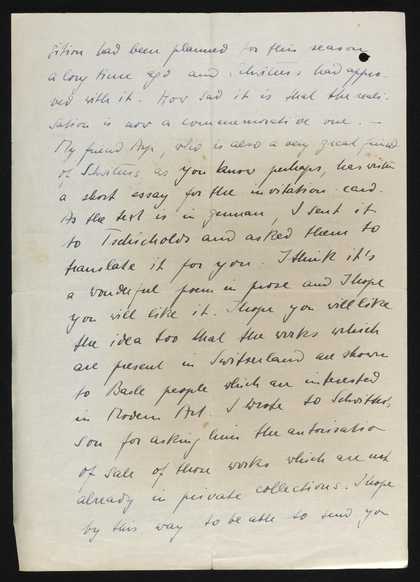 sition had been planned for this season
a long time ago and Schwitters had appro-
ved with it. How sad it is that the reali-
sation is now a commemorative one. —
My friend Arp, who is also a very great friend
of Schwitters, as you know perhaps, has written
a short essay for the invitation-card.
As the text is in german, I sent it
to Tschicholds and asked them to
translate it for you. I think it's
a wonderful poem in prose and I hope
you will like it. I hope you will like
the idea too that the works which
are present in Switzerland are shown
to Basle people which are interested
in Modern Art. I wrote to Schwitters,
son for asking him the autorisation
of sale of those works which are not
already in private collections. I hope
by this way to be able to send you